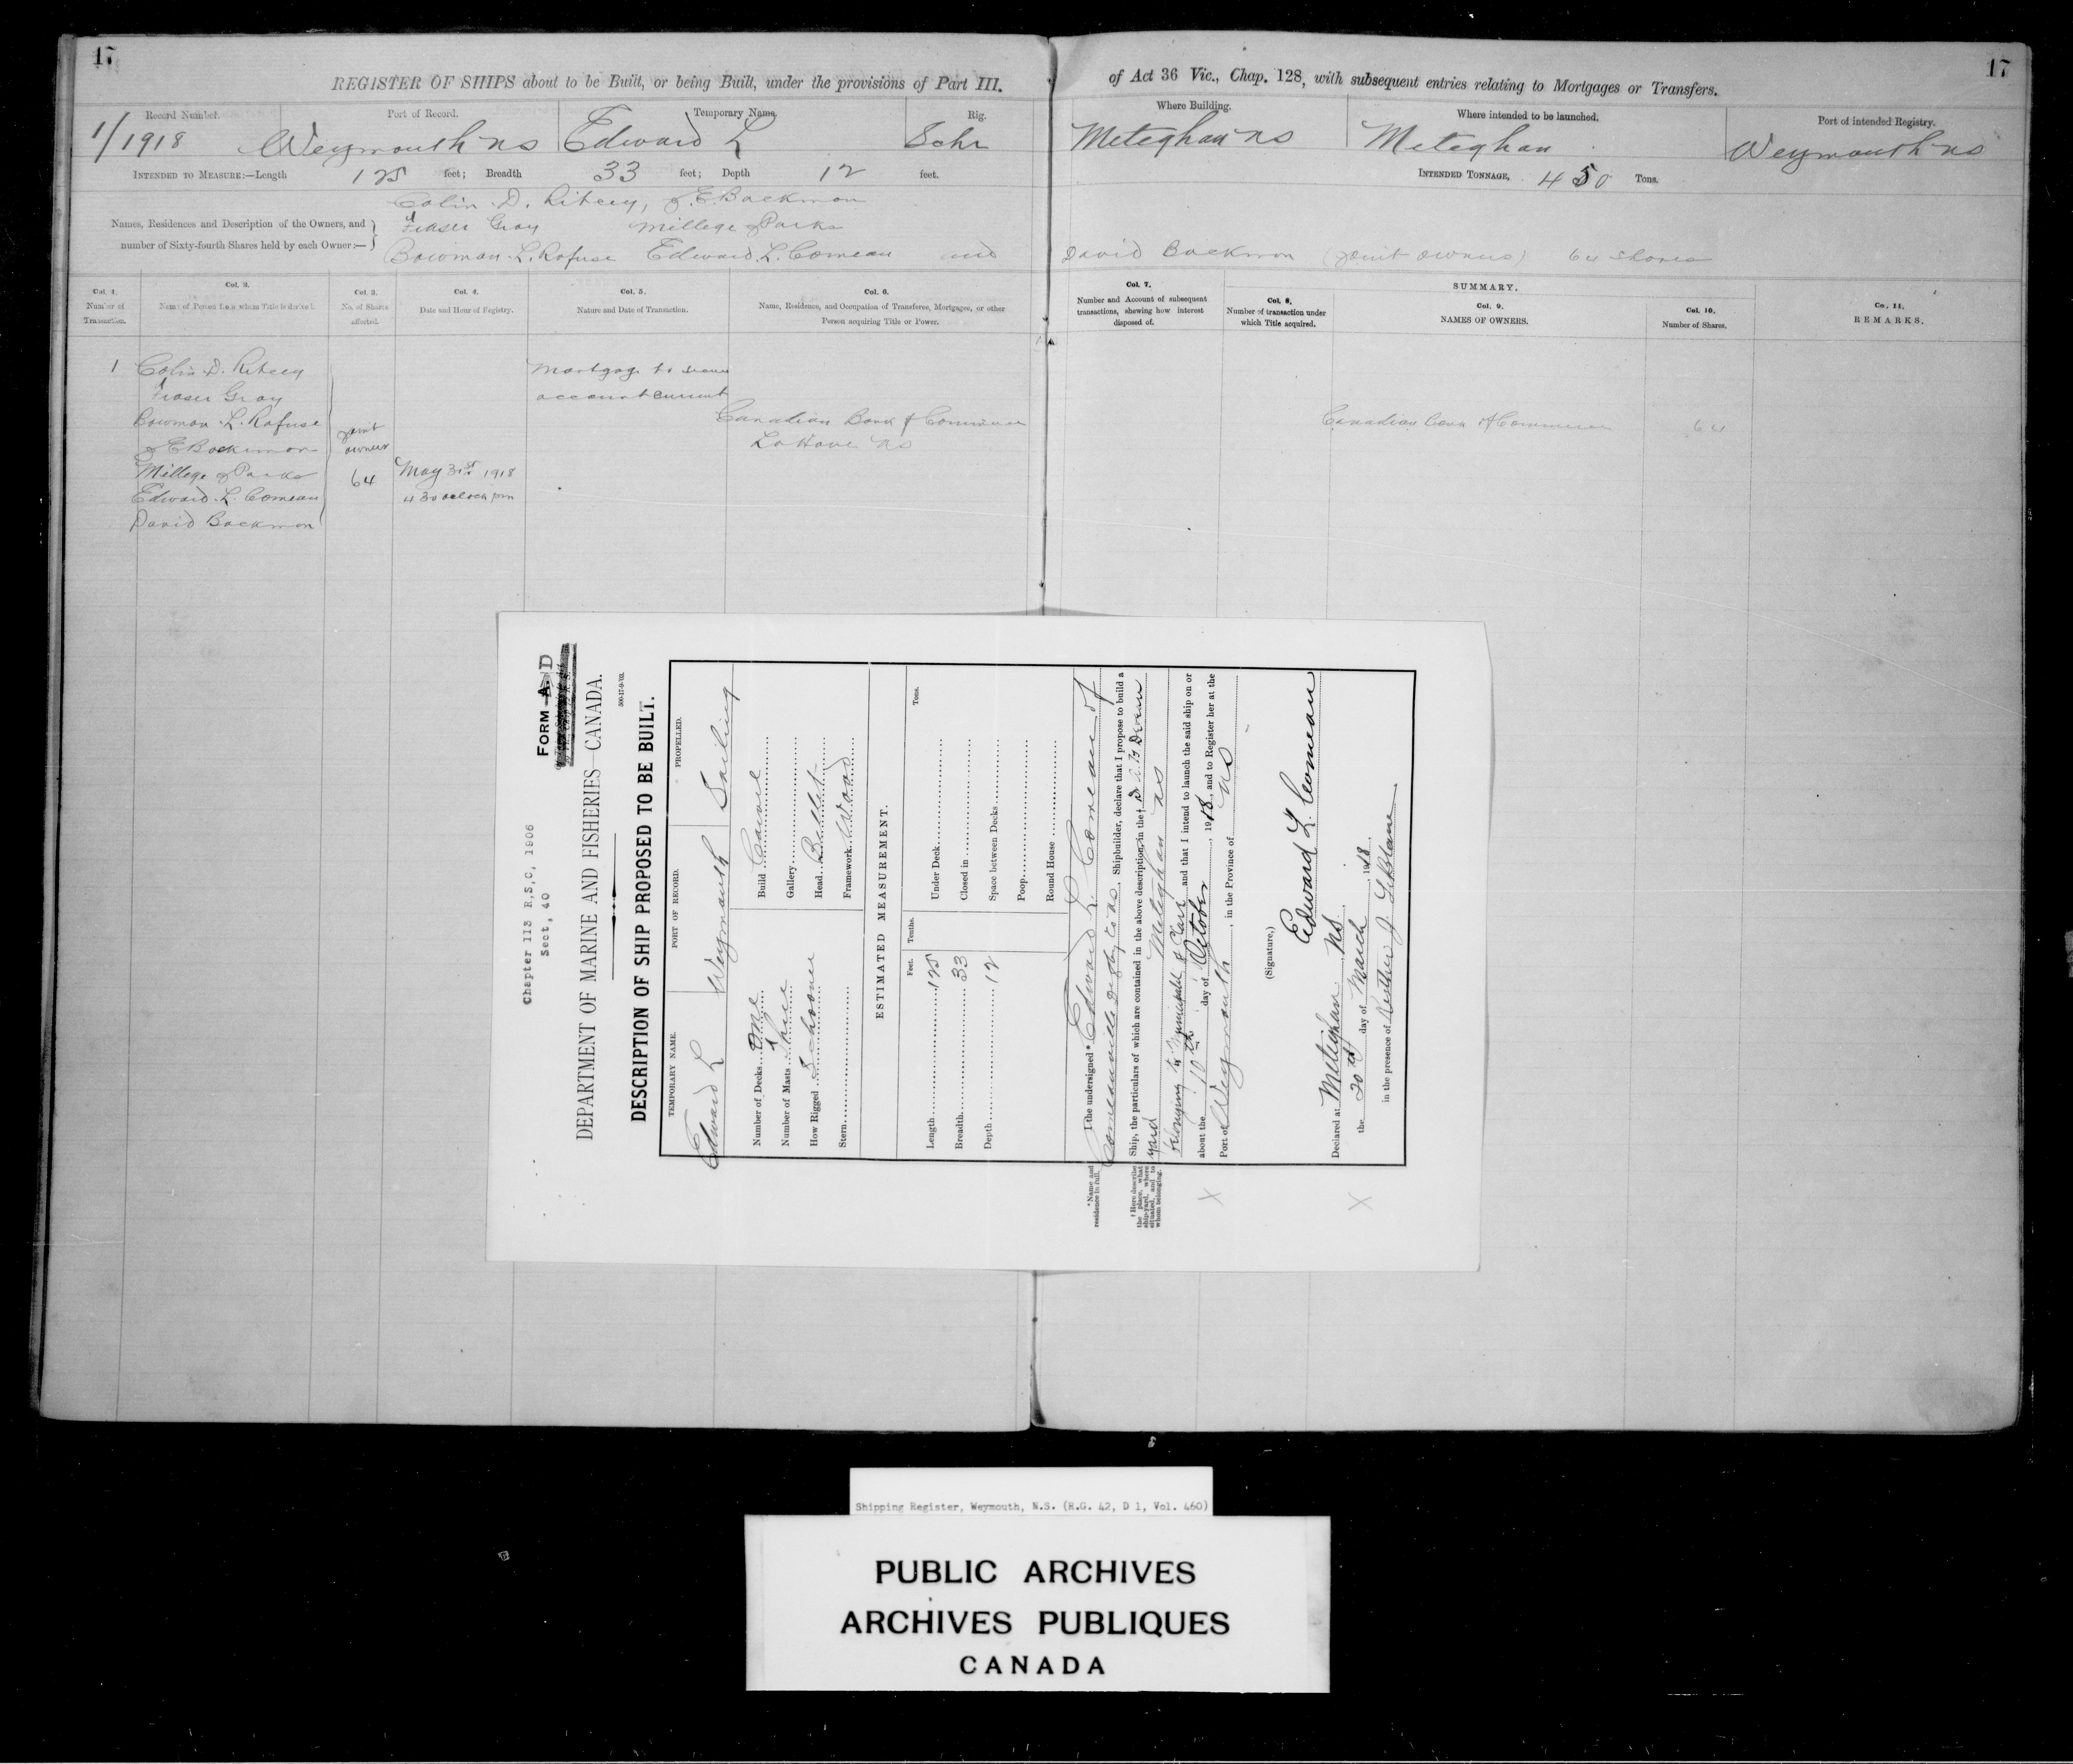 17
17
REGISTER OF SHIPS about to be Built, or being Built, under the provisions of Part III.
of Act 36 Vic., Chap. 128, with subsequent entries relating to Mortgages or Transfers.
Record Number. Port of Record. Temporary Name. Rig. Where Building. Where intended to be launched. Port of intended Registry.
1/1918 Weymouth NS Edward L Schr Meteghan NS Meteghan Weymouth NS
INTENDED TO MEASURE:—Length 125 feet; Breadth 33 feet; Depth 12 feet. INTENDED TONNAGE, 450 Tons.
Colin D. Ritcey, J.E. Backman
Names, Residences and Description of the Owners, and Fraser Gray Millege J Parks
number of Sixty-fourth Shares held by each Owner:— Bowman L. Rafuse Edward L. Comeau and David Backman (joint owners) 64 shares
Col. 1. Number of Transaction.
Col. 2. Name of Person from whom Title is derived.
Col. 3. No. of Shares affected.
Col. 4. Date and Hour of Registry.
Col. 5. Nature and Date of Transaction.
Col. 6. Name, Residence, and Occupation of Transferee, Mortgagee, or other
Person acquiring Title or Power.
Col. 7.
Number and Account of subsequent
transactions, shewing how interest
disposed of.
SUMMARY.
Col. 8.
Number of transaction under
which Title acquired.
Col. 9.
NAMES OF OWNERS.
Col. 10.
Number of Shares.
Co., 11,
REMARKS.
1 Colin D. Ritcey
Fraser Gray
Bowman L. Rafuse
J E Backman
Millege J Parks
Edward L. Comeau
David Backman
joint
owners
64
May 31st 1918
4 30 oclock pm
Mortgage to secure
account current
Canadian Bank of Commerce
LaHave NS
Canadian Bank of Commerce 64
Chapter 113 R,S,C, 1906
Sect, 40
FORM A. D
DEPARTMENT OF MARINE AND FISHERIES—CANADA.
500-17-9-'03.
DESCRIPTION OF SHIP PROPOSED TO BE BUILT.
TEMPORARY NAME. PORT OF RECORD. PROPELLED.
Edward L Weymouth Sailing
Number of Decks One
Number of Masts Three
How Rigged Schooner
Stern
Build Carvel
Gallery
Head Billet
Framework Wood
ESTIMATED MEASUREMENT.
Feet. Tenths. Tons.
Length 125
Breadth 33
Depth 12
Under Deck
Closed in
Space between Decks
Poop
Round House
I the undersigned * Edward L. Comeau of
Comeauville Digby Co NS, Shipbuilder, declare that I propose to build a
Ship, the particulars of which are contained in the above description, in the †
yard Meteghan NS
belonging to Municipality of Clare and that I intend to launch the said ship on or
about the 10th day of October, 1918, and to Register her at the
Port of Weymouth, in the Province of NS
(Signature,)
Edward L. Comeau
Declared at Meteghan NS.
the 20th day of March, 1918
in the presence of J. LeBlanc
* Name and
residence in full.
† Here describe
the place, what
ship-yard, where
situated, and to
whom belonging.
X
X
Shipping Register, Weymouth, N.S. (R.G. 42, D 1, Vol. 460)
PUBLIC ARCHIVES
ARCHIVES PUBLIQUES
CANADA